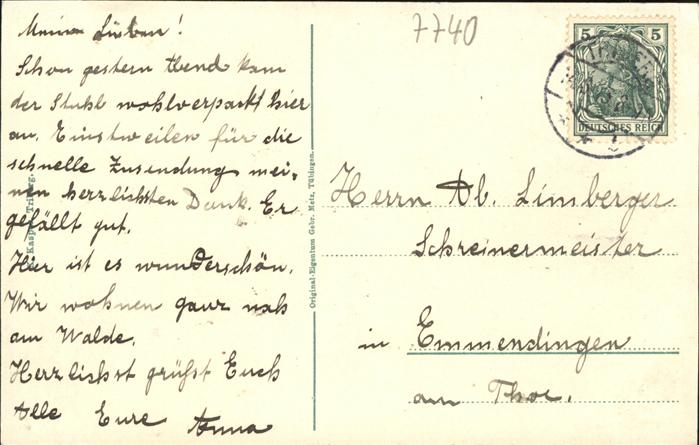 Meine Lieben!
Schon gestern Abend kam
der Stuhl wohlverpackt hier
an. Einstweilen für die
schnelle Zusendung mei-
nen herzlichsten Dank. Er
gefällt gut.
Hier ist es wunderschön.
Wir wohnen ganz nah
am Walde.
Herzlichst grüßt Euch
Alle Eure Anna
Original-Eigentum Gebr. Metz, Tübingen.
7740
5 5
DEUTSCHES REICH
Herrn Ab. Limberger
Schreinermeister
in Emmendingen
am Thor.